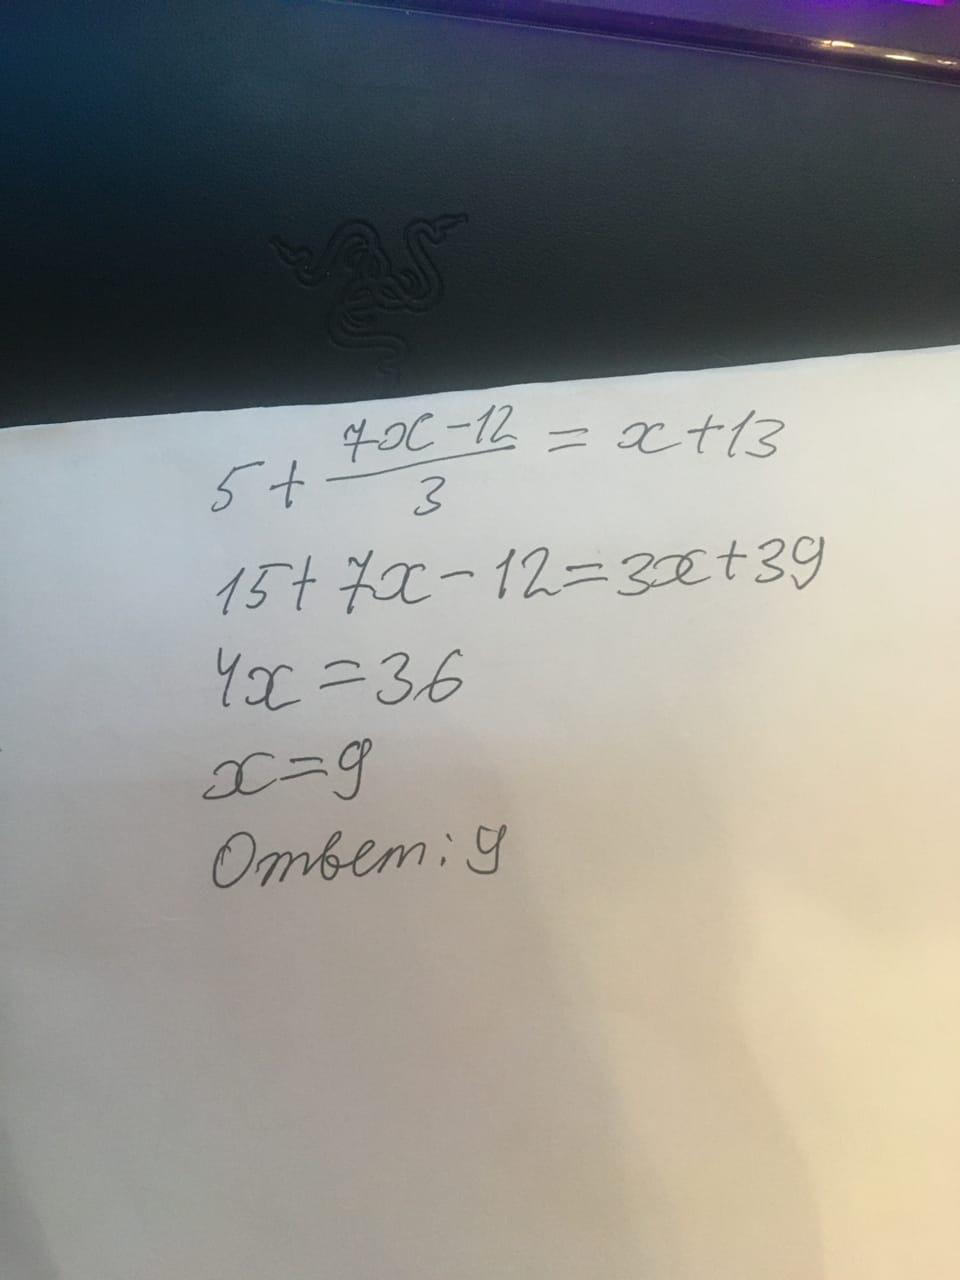 5 + \frac{7x-12}{3} = x+13
15+7x-12=3x+39
4x=36
x=9
Ответ: 9